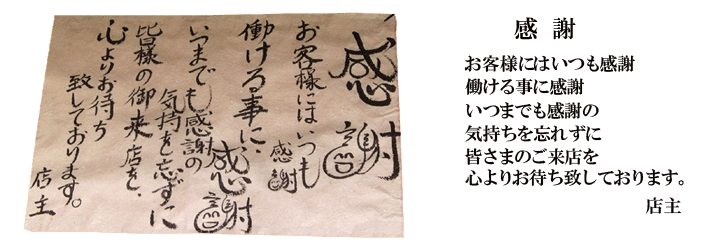 感謝
お客様にはいつも
感謝
働ける事に、
感謝
いつまでも感謝の
気持を忘ずに
皆様の御来店を、
心よりお待ち
致しております。
店主
感謝
お客様にはいつも感謝
働ける事に感謝
いつまでも感謝の
気持ちを忘れずに
皆さまのご来店を
心よりお待ち致しております。
店主